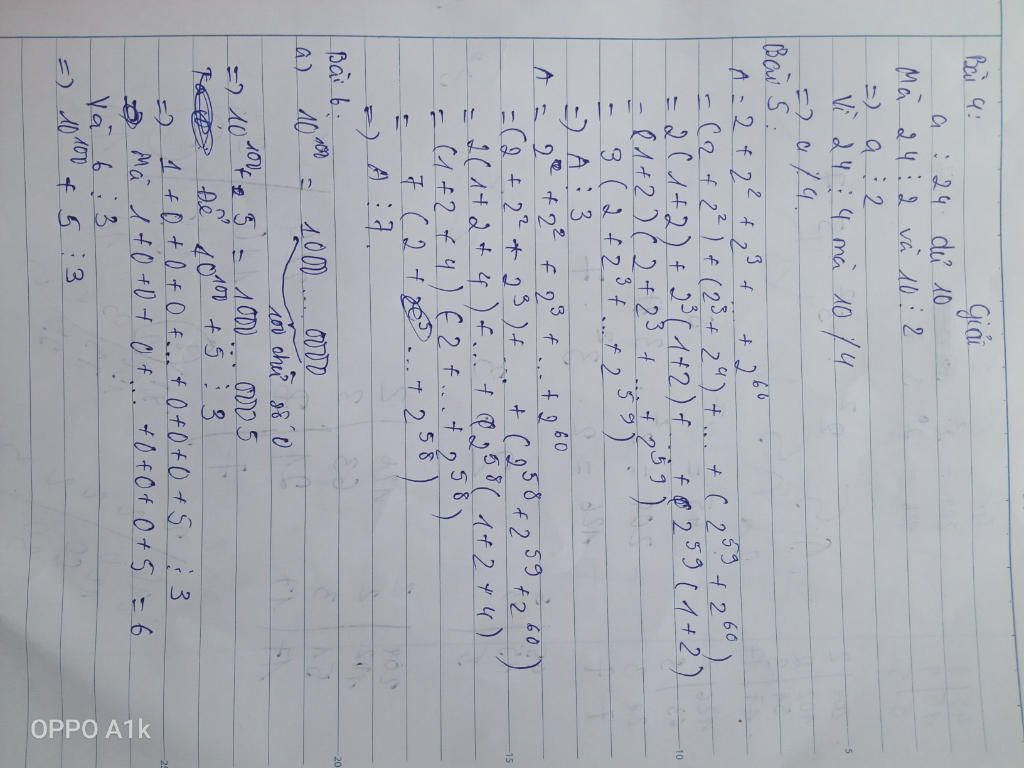 Giải
Bài 4:
a : 24 dư 10
Mà 24 ⋮ 2 và 10 ⋮ 2
=) a ⋮ 2
Vì 24 ⋮ 4 mà 10 ̸ 4
=) a ̸ 4
Bài 5:
A = 2 + 2² + 2³ + ... + 2⁶⁰
= (2 + 2²) + (2³ + 2⁴) + ... + (2⁵⁹ + 2⁶⁰)
= 2(1+2) + 2³(1+2) + ... + 2⁵⁹(1+2)
= (1+2)(2 + 2³ + ... + 2⁵⁹)
= 3(2 + 2³ + ... + 2⁵⁹)
=) A ⋮ 3
A = 2 + 2² + 2³ + ... + 2⁶⁰
= (2 + 2² + 2³) + ... + (2⁵⁸ + 2⁵⁹ + 2⁶⁰)
= 2(1 + 2 + 4) + ... + (2⁵⁸(1 + 2 + 4)
= (1 + 2 + 4)(2 + ... + 2⁵⁸)
= 7(2 + ... + 2⁵⁸)
=) A ⋮ 7
Bài 6:
a) 10¹⁰⁰ = 1000....0000
100 chữ số 0
=) 10¹⁰⁰ + 5 = 1000... 0005
Để 10¹⁰⁰ + 5 ⋮ 3
=) 1 + 0 + 0 + 0 + ... + 0 + 0 + 0 + 5 ⋮ 3
Mà 1 + 0 + 0 + 0 + ... + 0 + 0 + 0 + 5 = 6
Và 6 ⋮ 3
=) 10¹⁰⁰ + 5 ⋮ 3
5
10
15
20
25
OPPO A1k